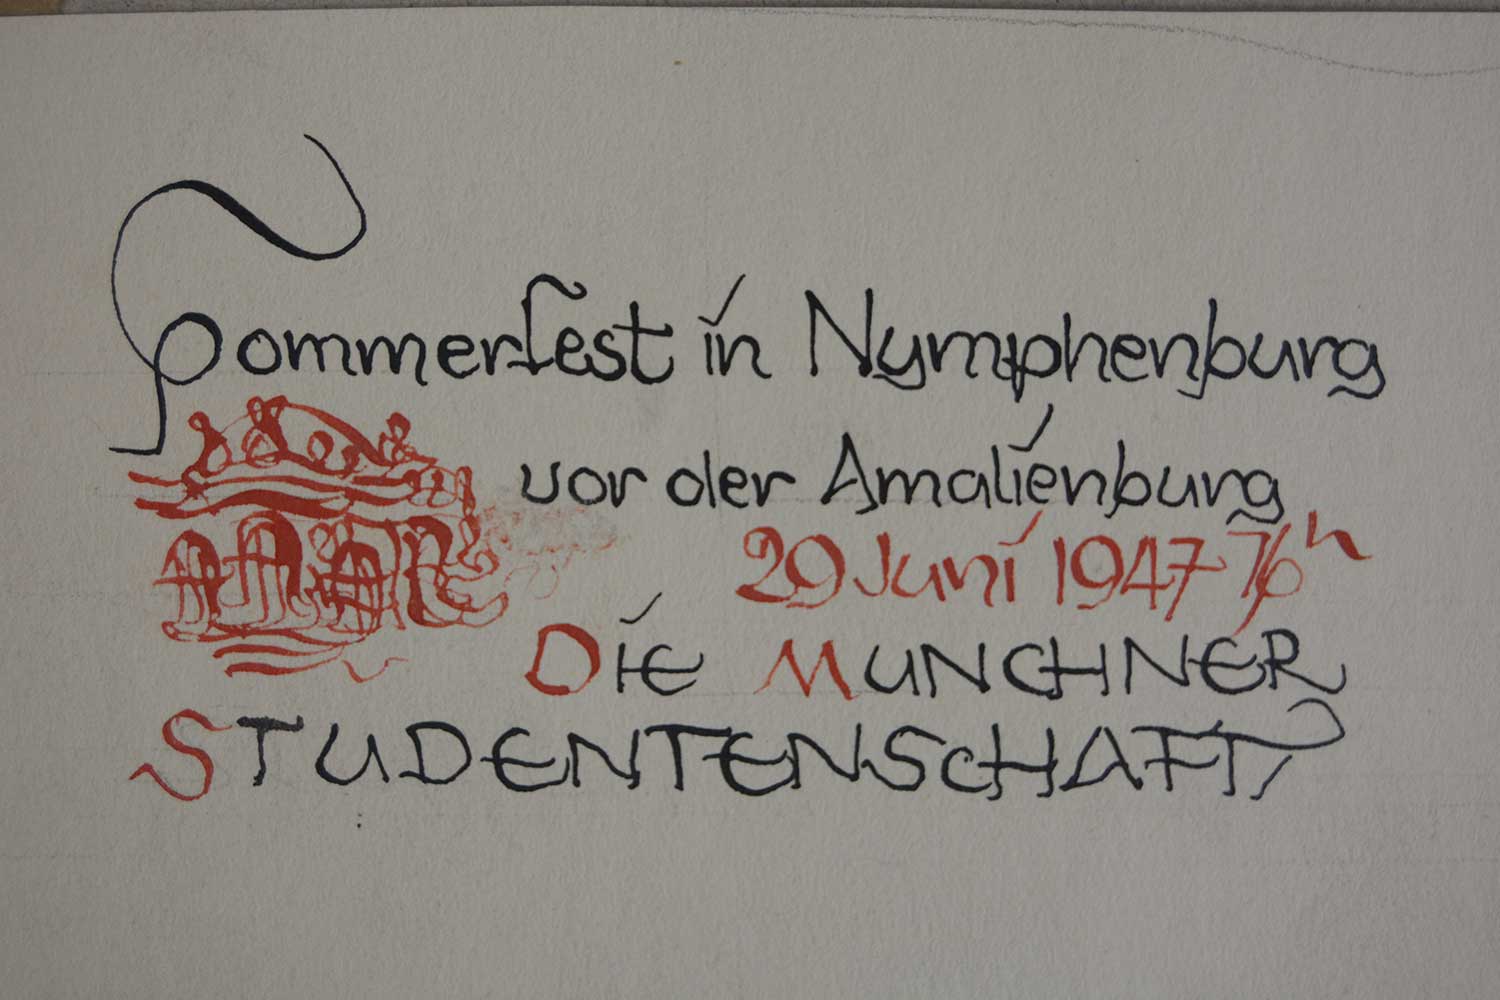 Sommerfest in Nymphenburg
vor der Amalienburg
29 Juni 1947 16h
Die MUNCHNER
STUDENTENSCHAFT